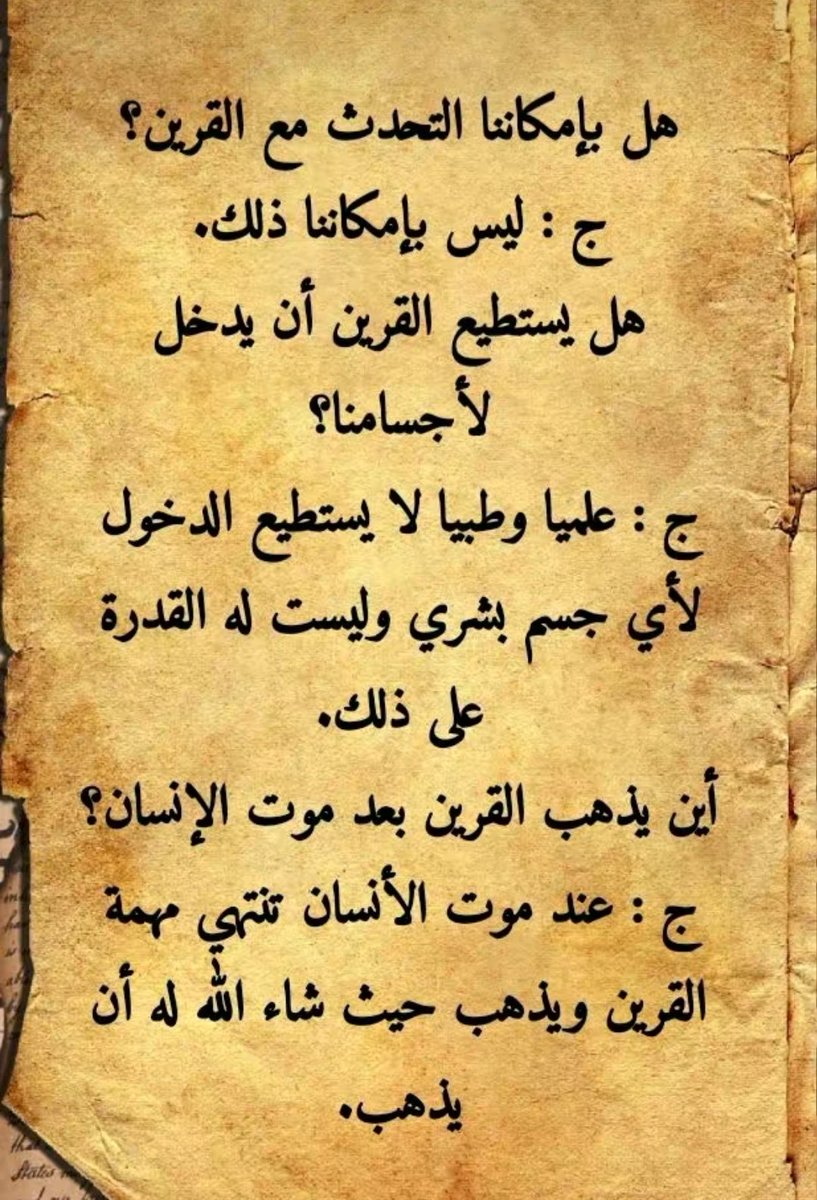 هل بإمكاننا التحدث مع القرين؟
ج : ليس بإمكاننا ذلك.
هل يستطيع القرين أن يدخل
لأجسامنا؟
ج : علميا وطبيا لا يستطيع الدخول
لأي جسم بشري وليست له القدرة
على ذلك.
أين يذهب القرين بعد موت الإنسان؟
ج : عند موت الأنسان تنتهي مهمة
القرين ويذهب حيث شاء الله له أن
يذهب.
that
States